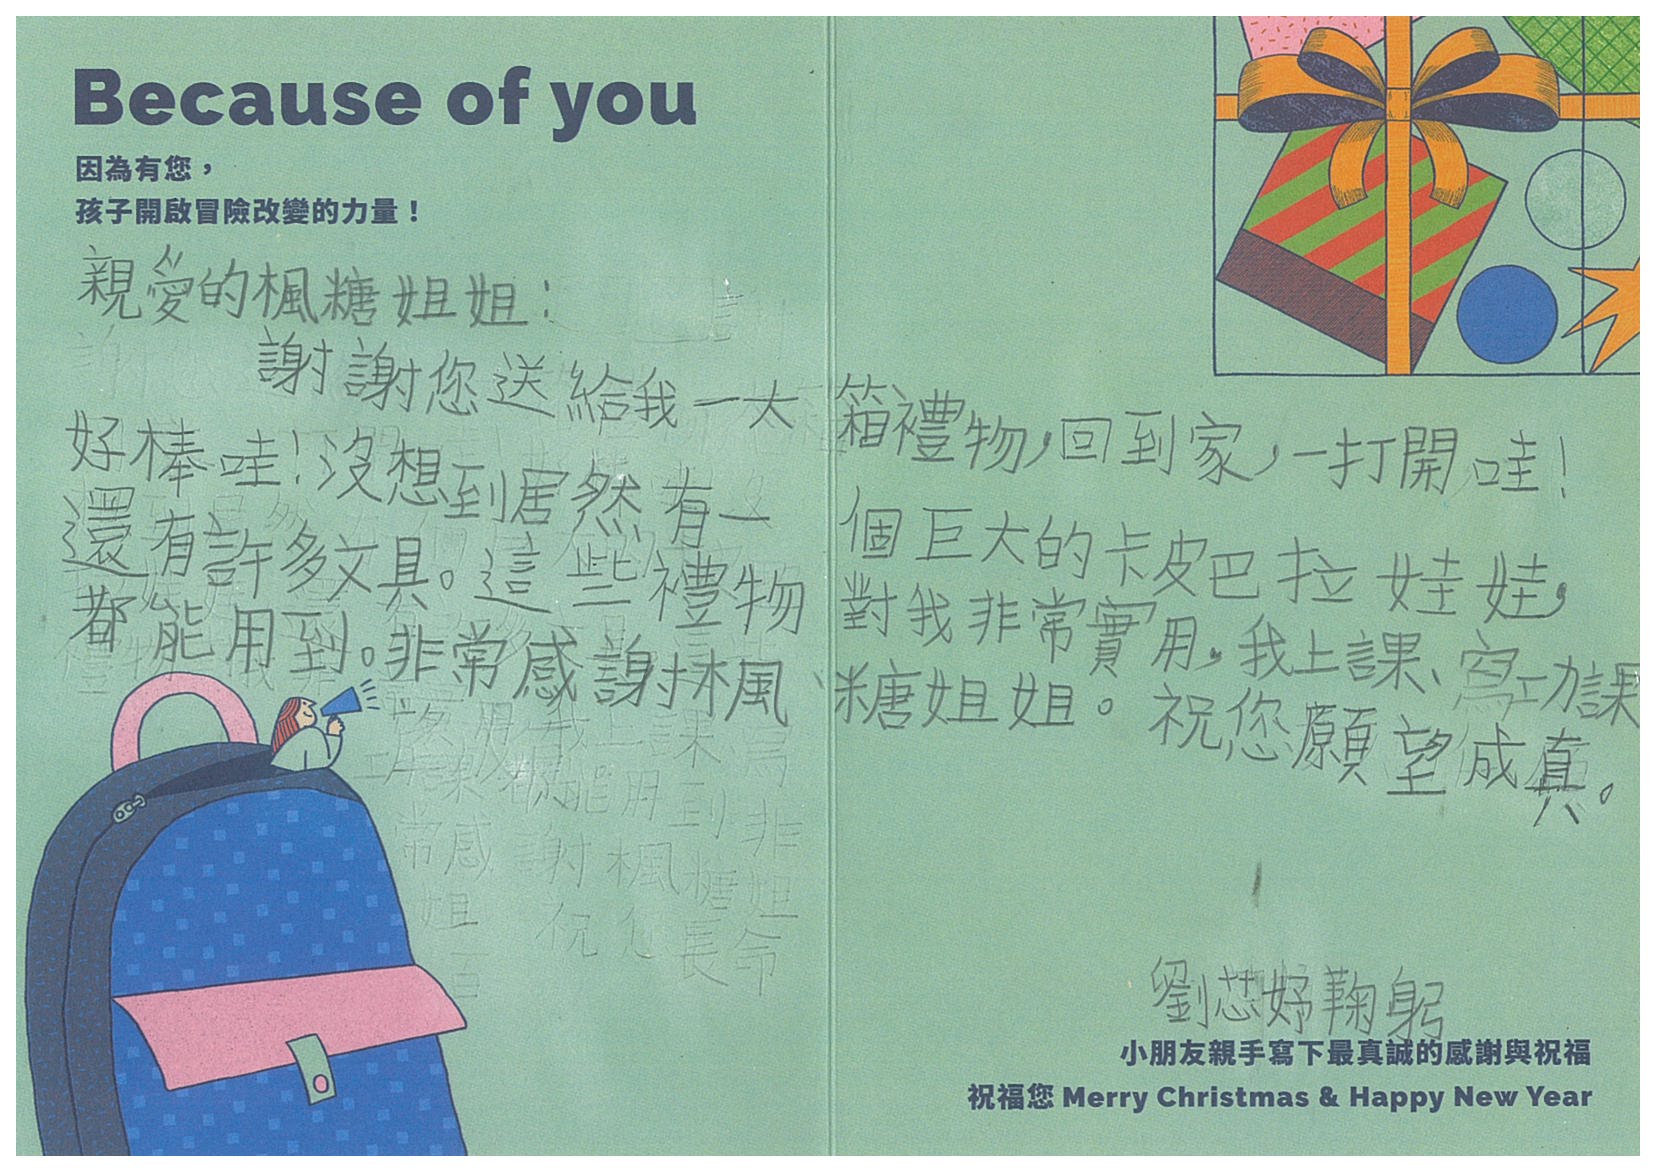 Because of you
因為有您，
孩子開啟冒險改變的力量！
親愛的楓糖姐姐：
謝謝您送給我一大箱禮物，回到家，一打開哇！
好棒哇！沒想到居然有一個巨大的卡皮巴拉娃娃，
還有許多文具。這些禮物對我非常實用，我上課、寫功課
都能用到。非常感謝楓糖姐姐。祝您願望成真。
劉芯妤鞠躬
小朋友親手寫下最真誠的感謝與祝福
祝福您 Merry Christmas & Happy New Year